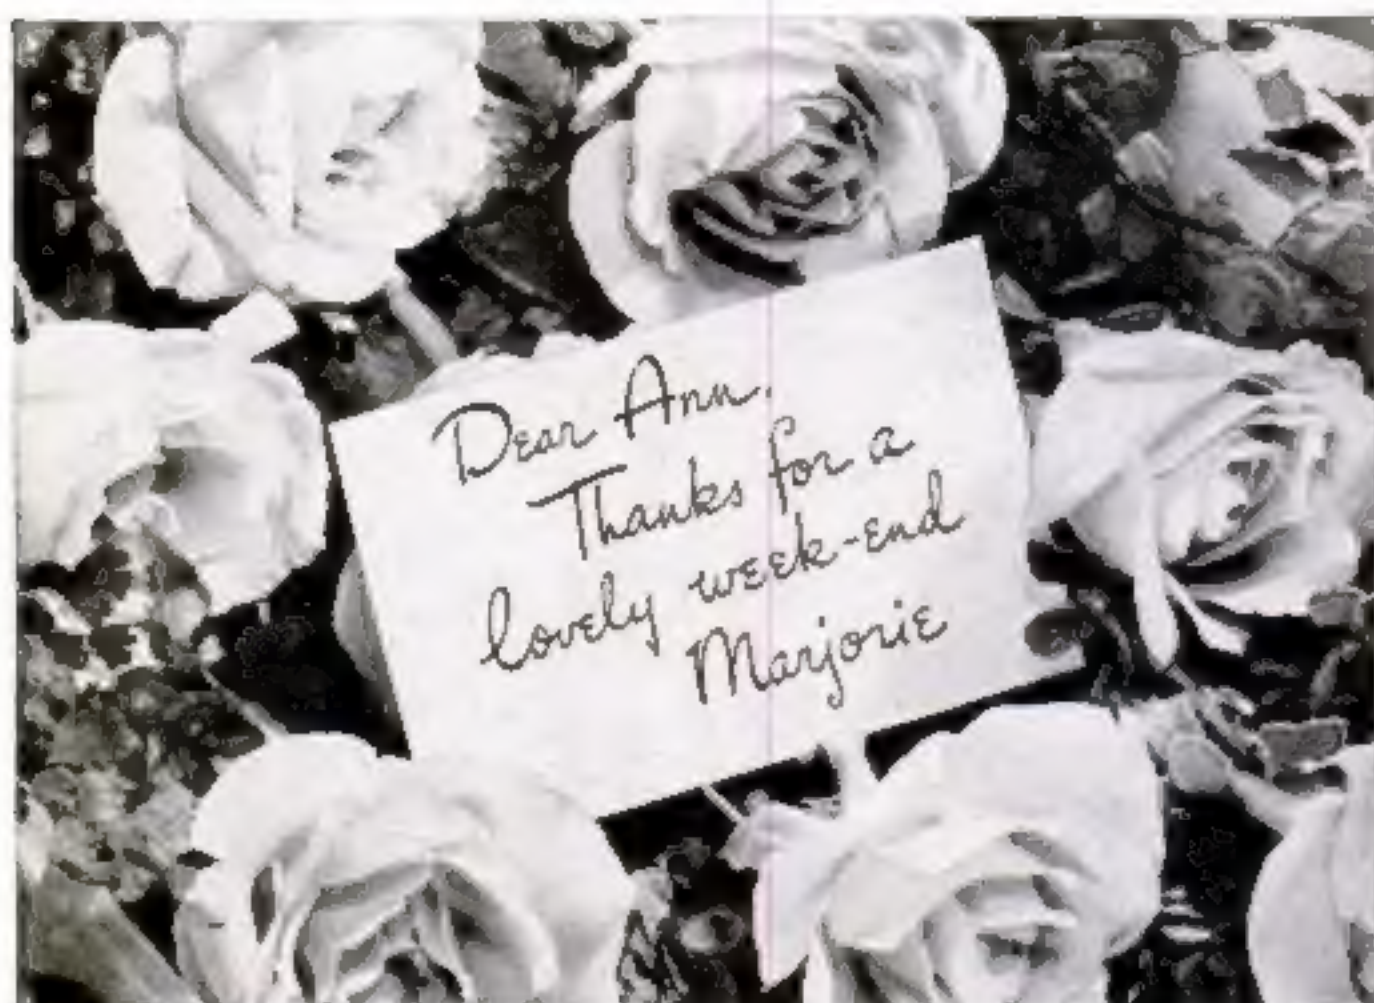 Dear Ann.
Thanks for a
lovely week-end
Marjorie